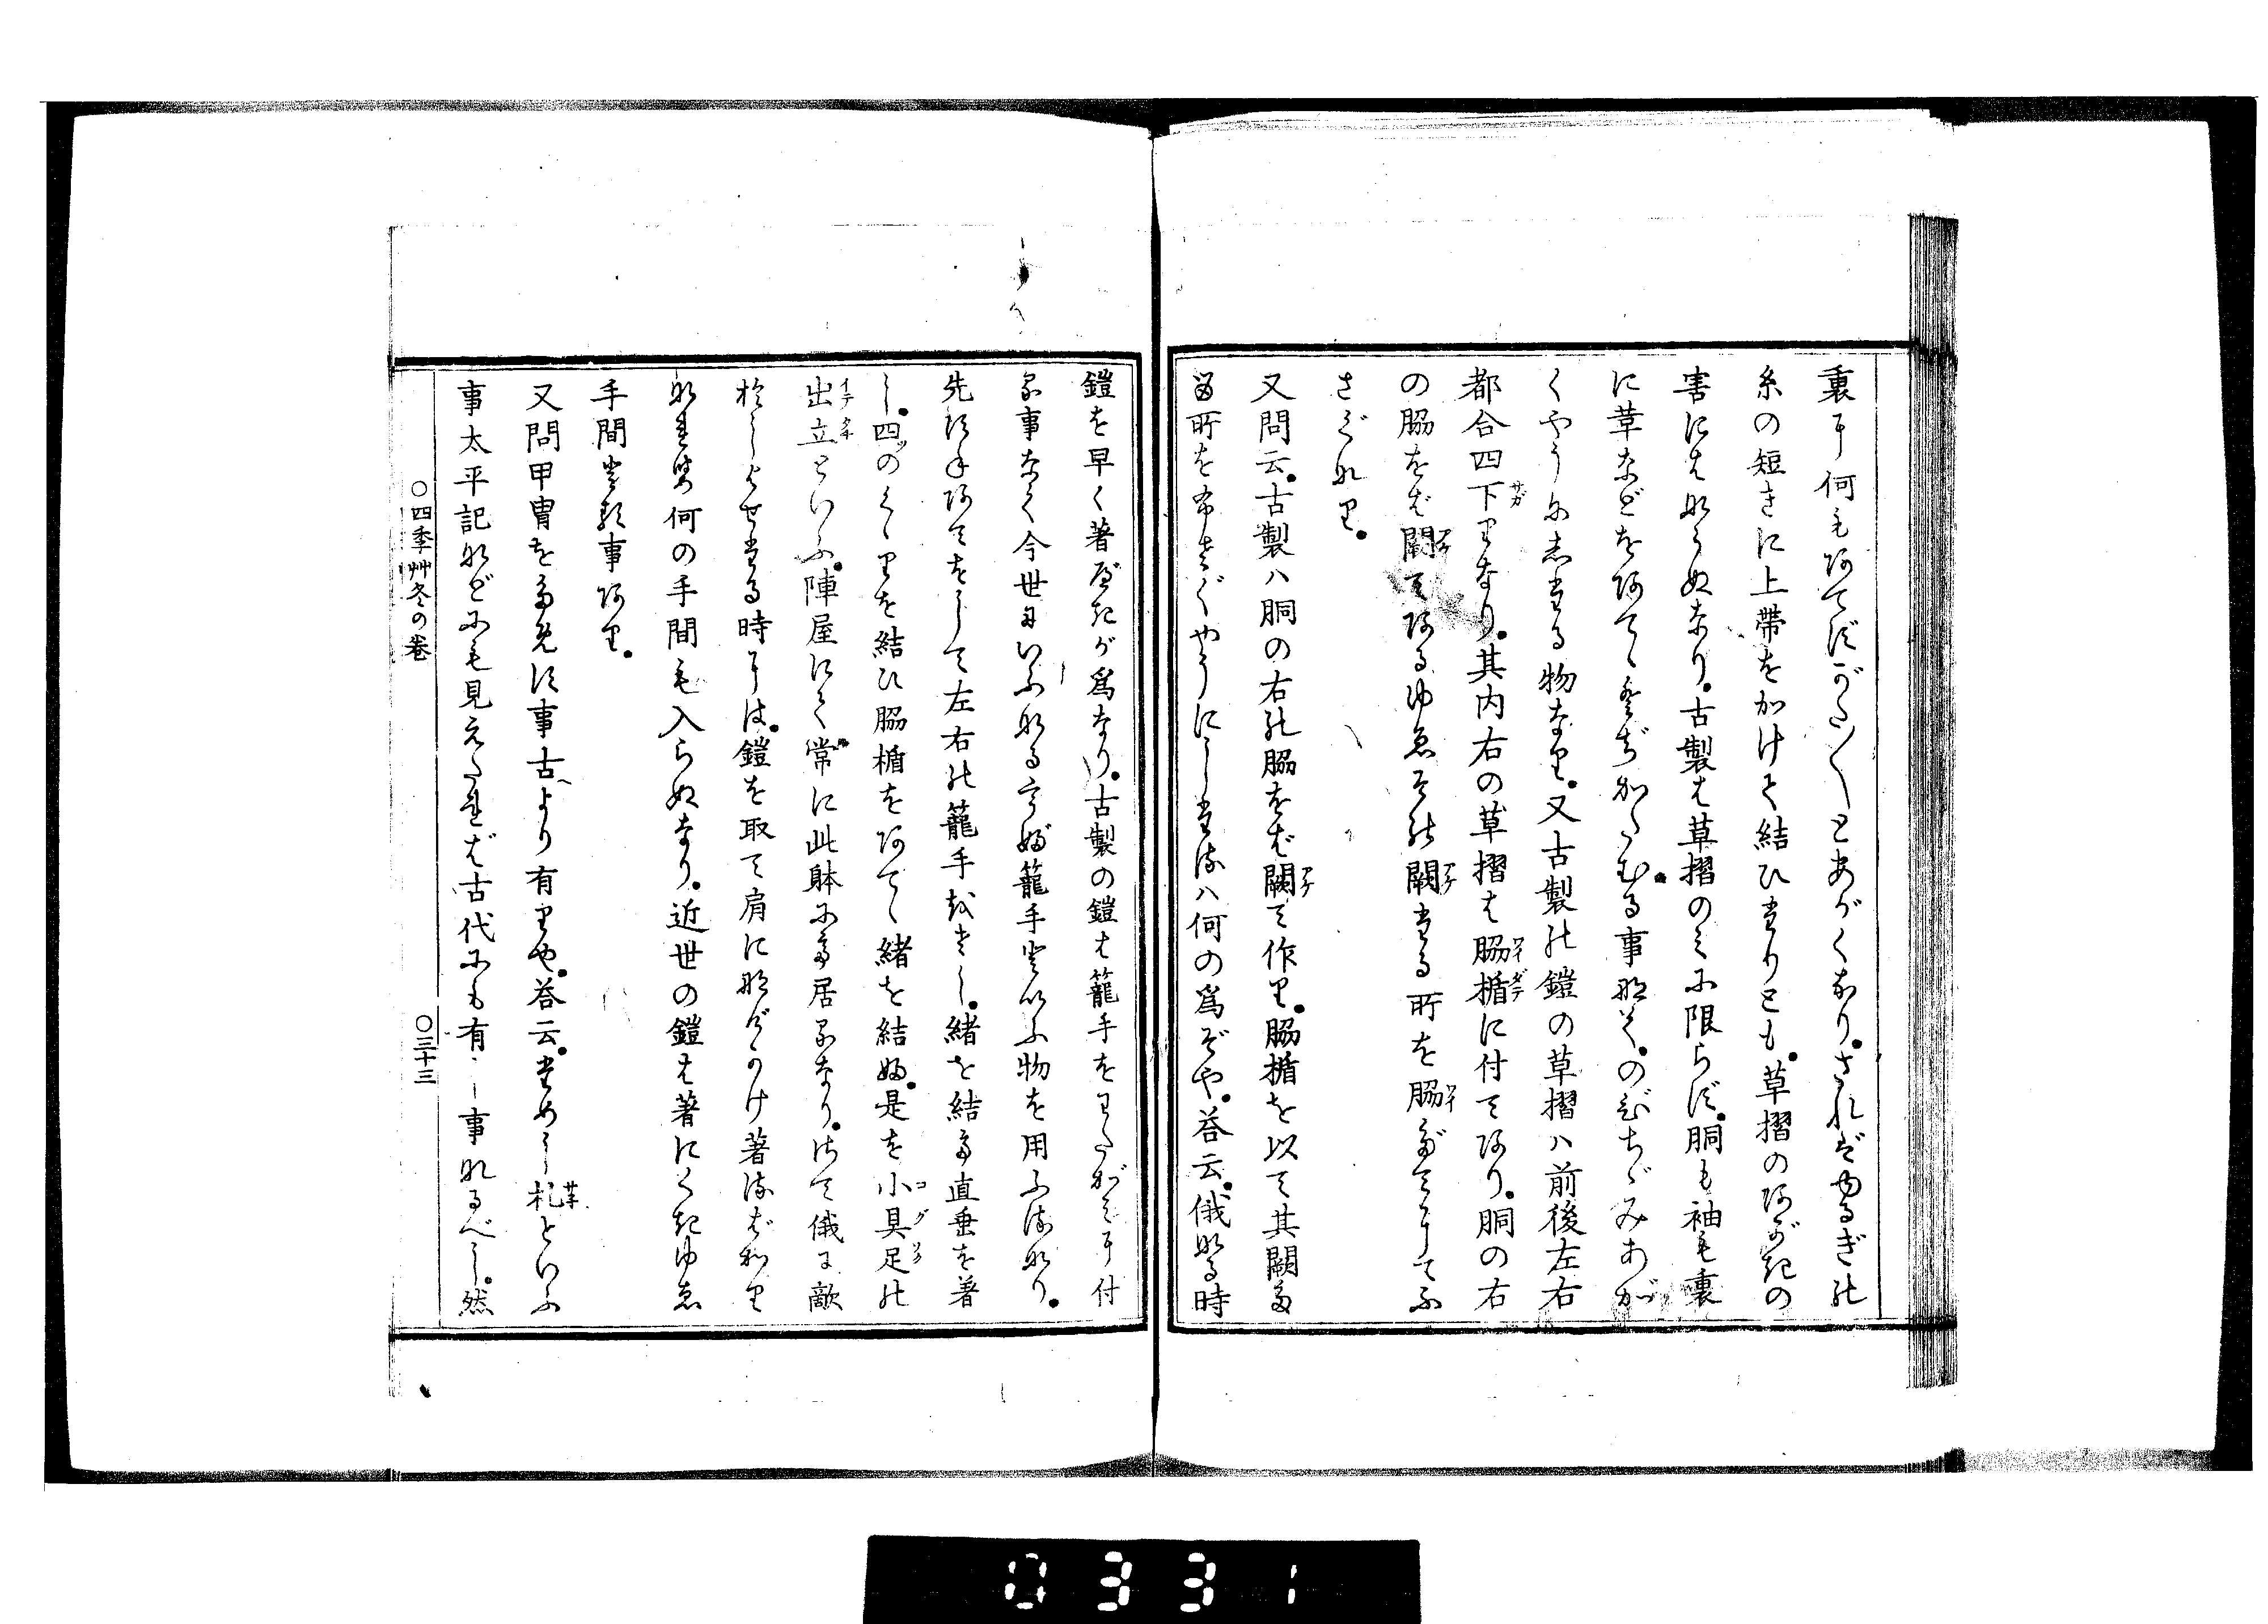 裏に何もあてずがた〳〵とあがくなり。されどゆるぎの
糸の短きに上帯をかけて結ひたりとも。草摺のあがきの
害にはならぬなり。古製は草摺のミに限らず。胴も袖も裏
に革などをあてゝとぢかたむる事なく。のびちゞみあが
くやうにしたる物なり。又古製の鎧の草摺ハ前後左右
都合四下りなり。其内右の草摺は脇楯に付てあり。胴の右
の脇をば闕てあるゆゑその闕たる所を脇だてにてふ
さぐなり。
又問云。古製ハ胴の右の脇をば闕て作り。脇楯を以て其闕た
る所をふさぐやうにしたるハ何の為ぞや。答云。俄なる時
鎧を早く著べきが為なり。古製の鎧は籠手をわたがミに付
る事なく今世にいふなるさし籠手といふ物を用ふるなり。
先はだにあてをして左右の籠手をさし。緒を結た直垂を著
し。四のくゝりを結ひ脇楯をあてゝ緒を結ふ。是を小具足の
出立といふ。陣屋にて常に此躰にて居るなり。さて俄に敵
おしよせたる時には。鎧を取て肩になげかけ著ればかり
なれば何の手間も入らぬなり。近世の鎧は著にくきゆゑ
手間とる事あり。
又問甲冑をためす事古へより有りや。答云。ためし札といふ
事太平記などにも見えたれば古代にも有し事なるべし。然
○四季艸冬の巻
○三十三
0331